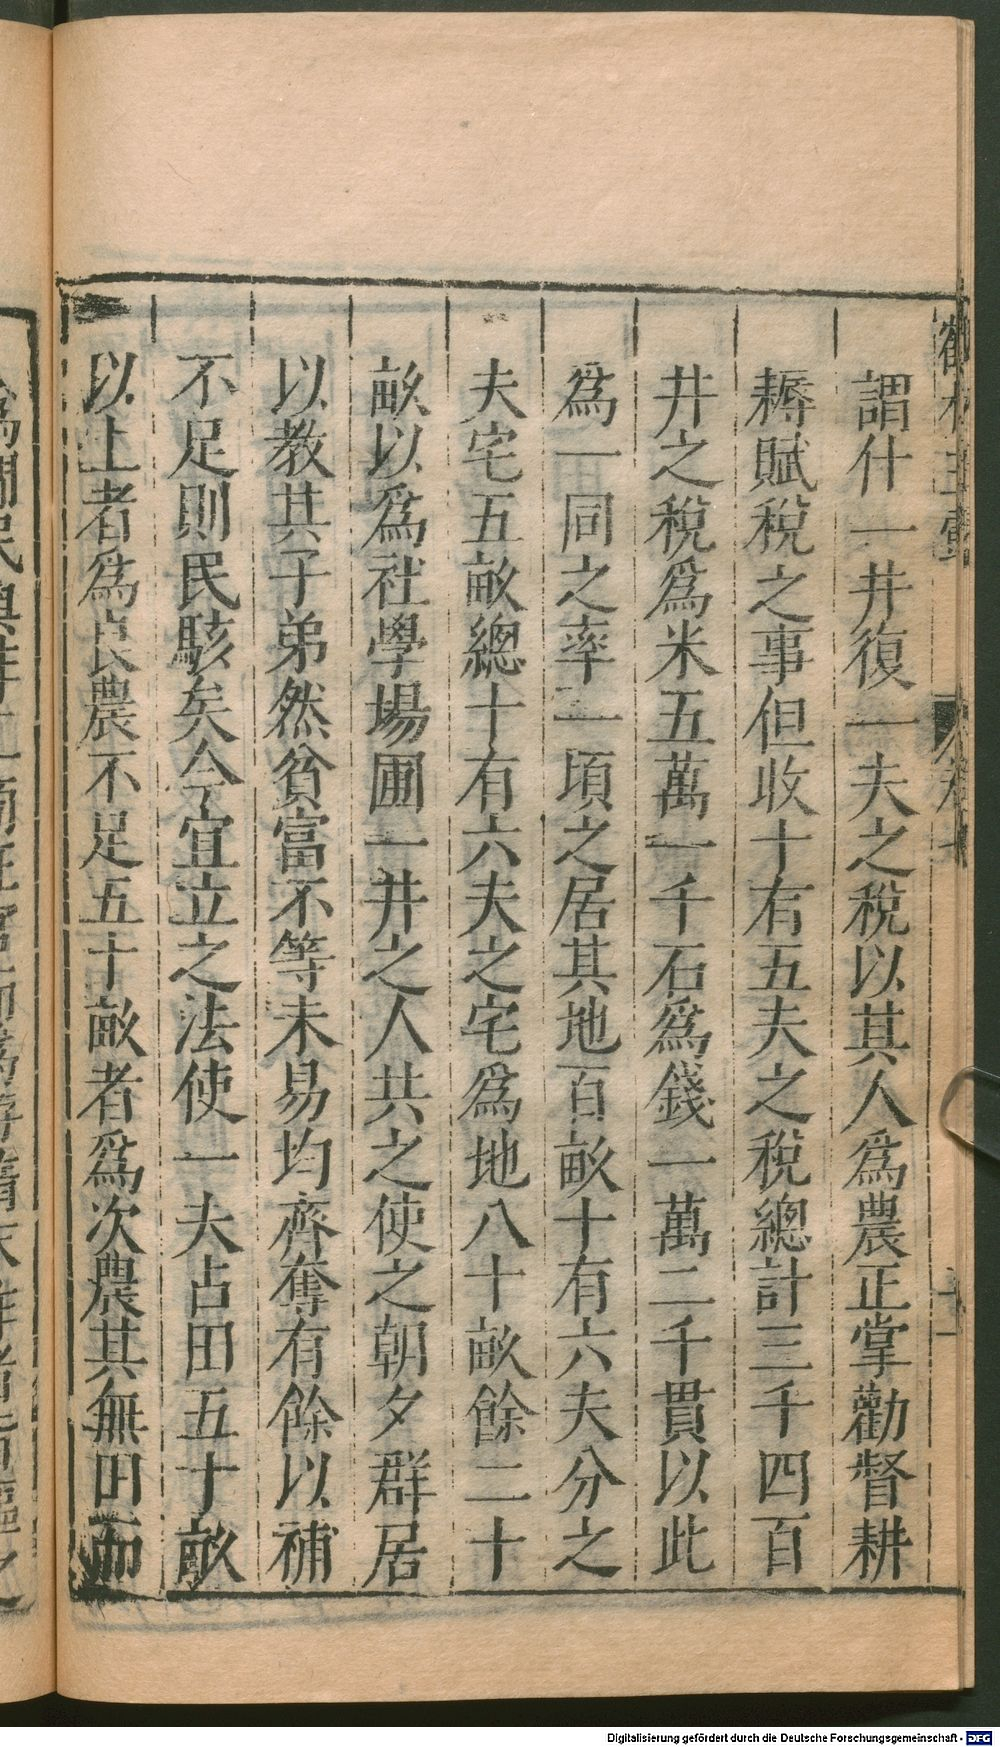 謂什一井復一夫之稅以其人爲農正掌勸督耕
耨賦稅之事但收十有五夫之稅總計三千四百
井之稅爲米五萬一千石爲錢一萬二千貫以此
爲一同之率一頃之居其地百畝十有六夫分之
夫宅五畝總十有六夫之宅爲地八十畝餘二十
畝以爲社學場圃一井之人共之使之朝夕群居
以教其子弟然貧富不等未易均齊奪有餘以補
不足則民駭矣今宜立之法使一夫占田五十畝
以上者爲良農不足五十畝者爲次農其無田而
Digitalisierung gefördert durch die Deutsche Forschungsgemeinschaft - DFG